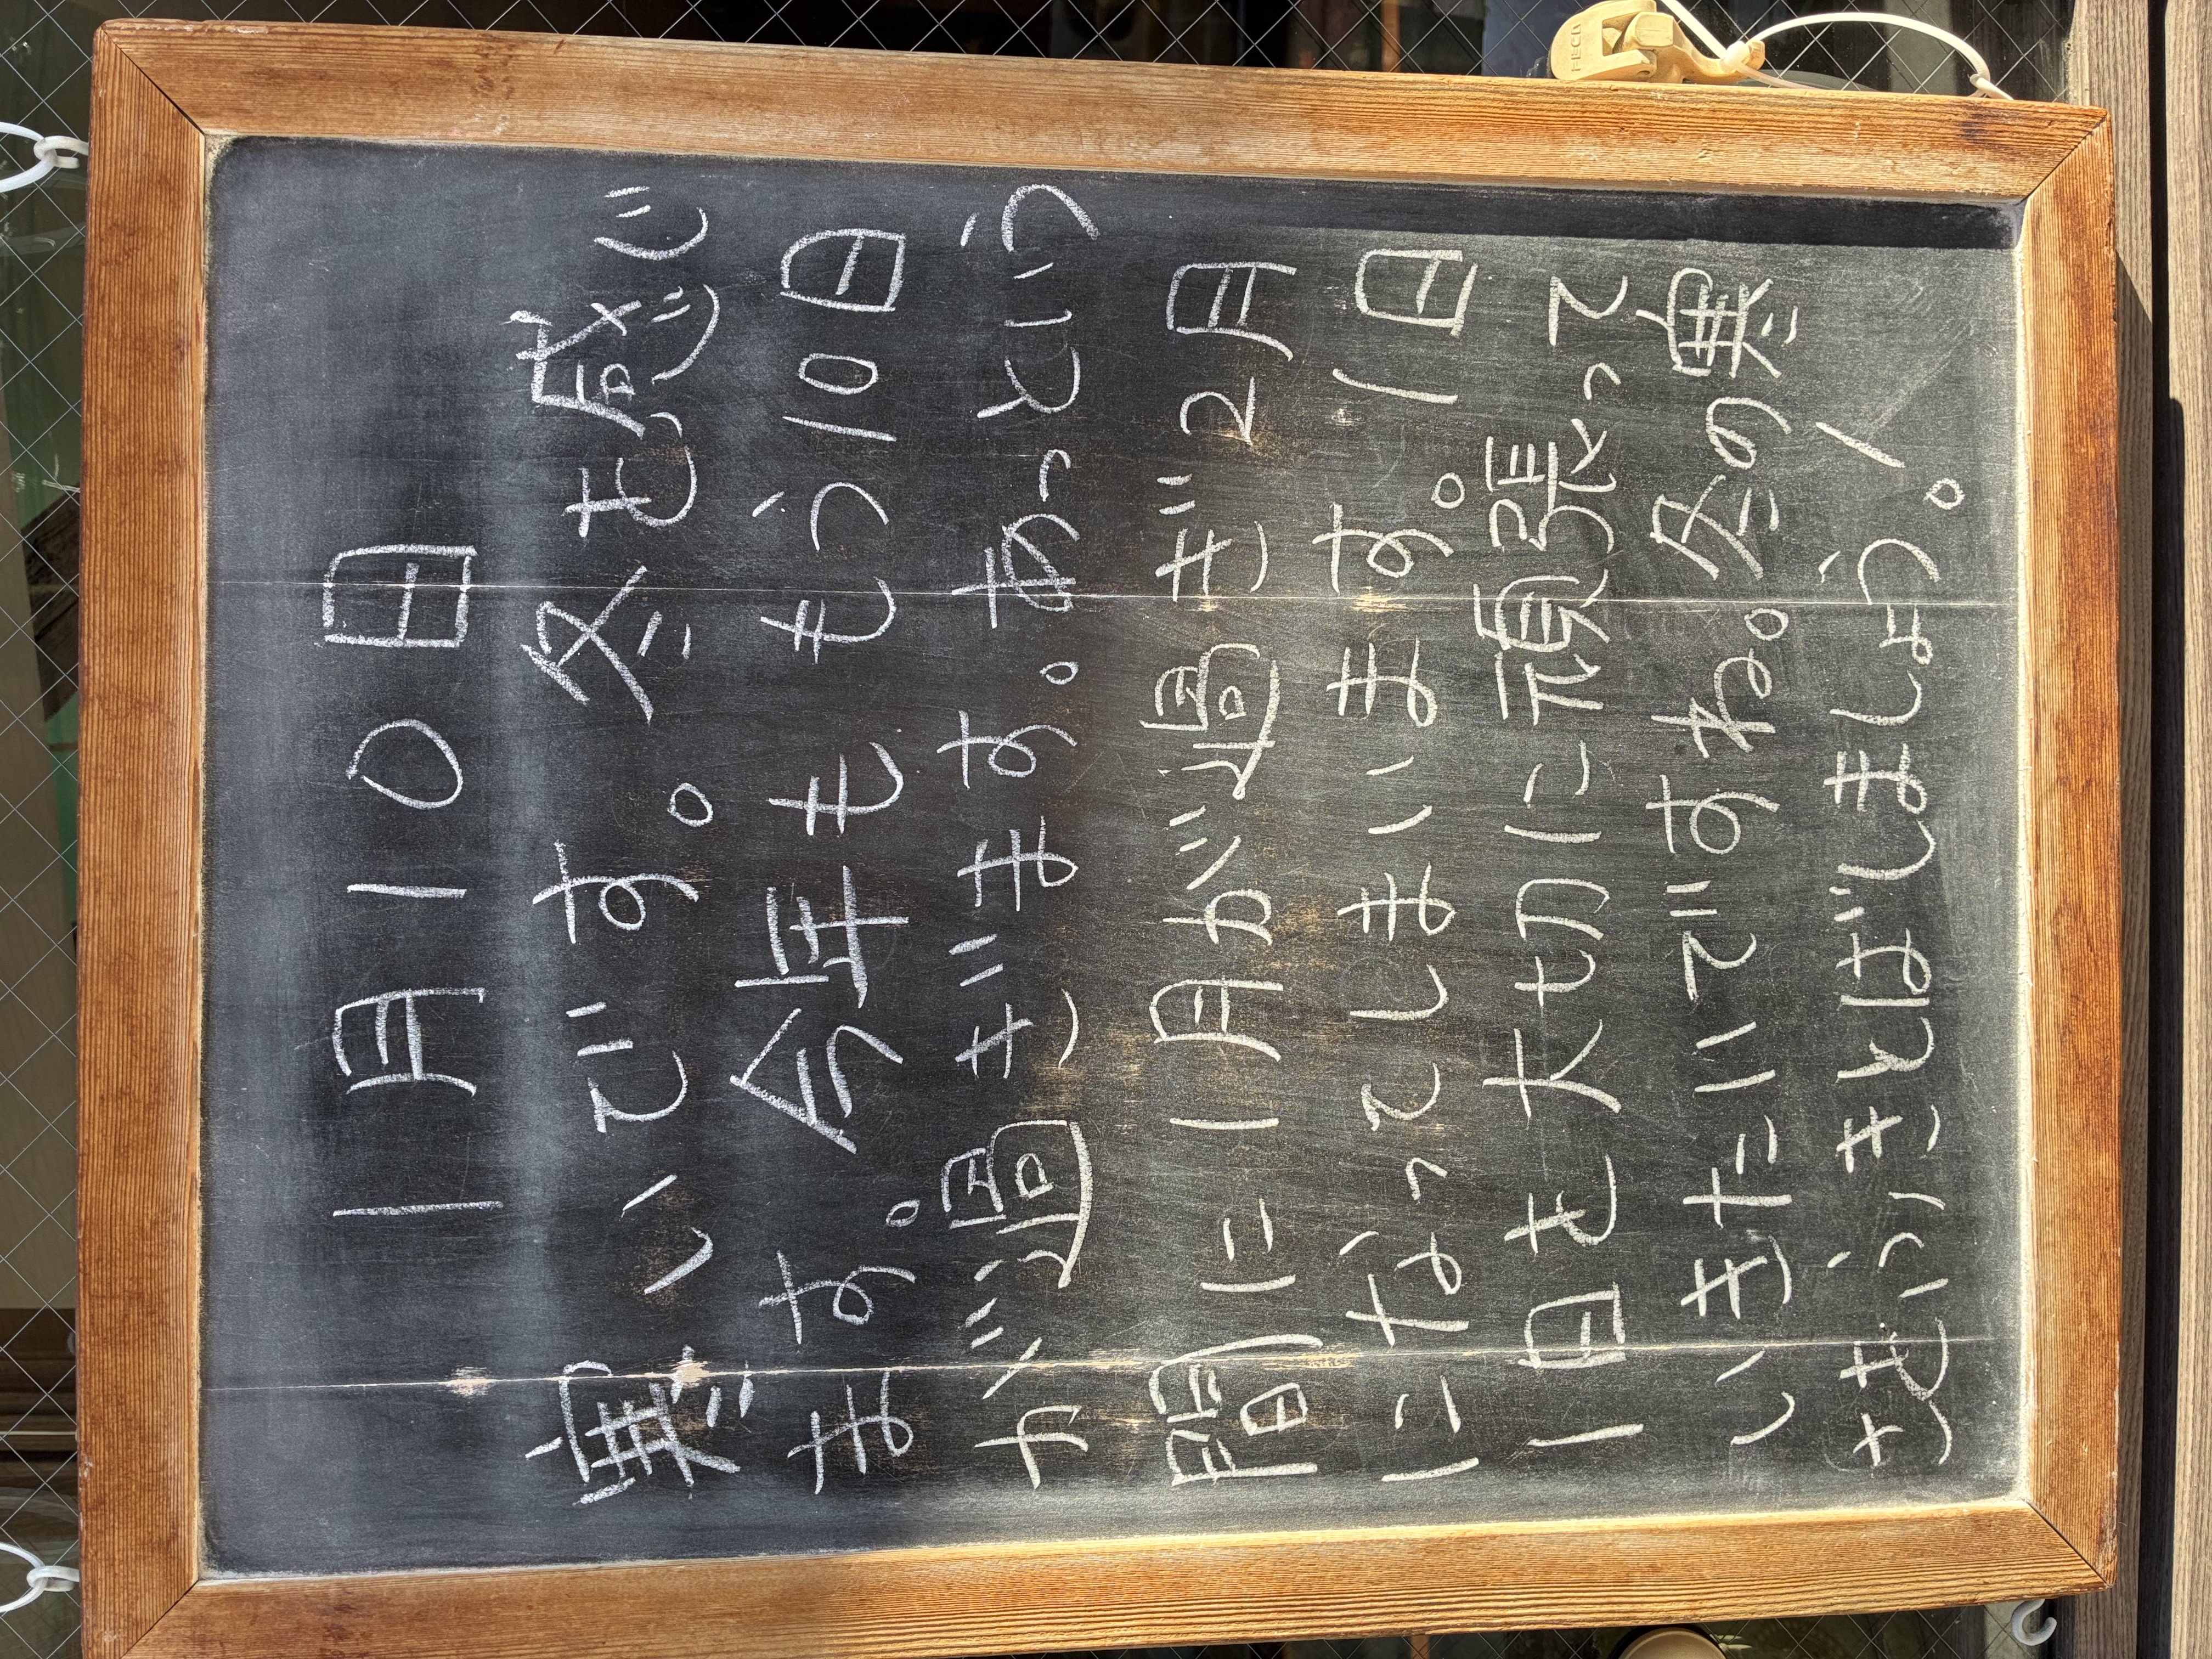 1月10日
寒いです。冬を感じ
ます。今年ももう10日
が過ぎます。あっという
間に1月が過ぎ2月
になってしまいます。1日
1日を大切に頑張って
いきたいですね。冬の寒
さをふきとばしましょう!